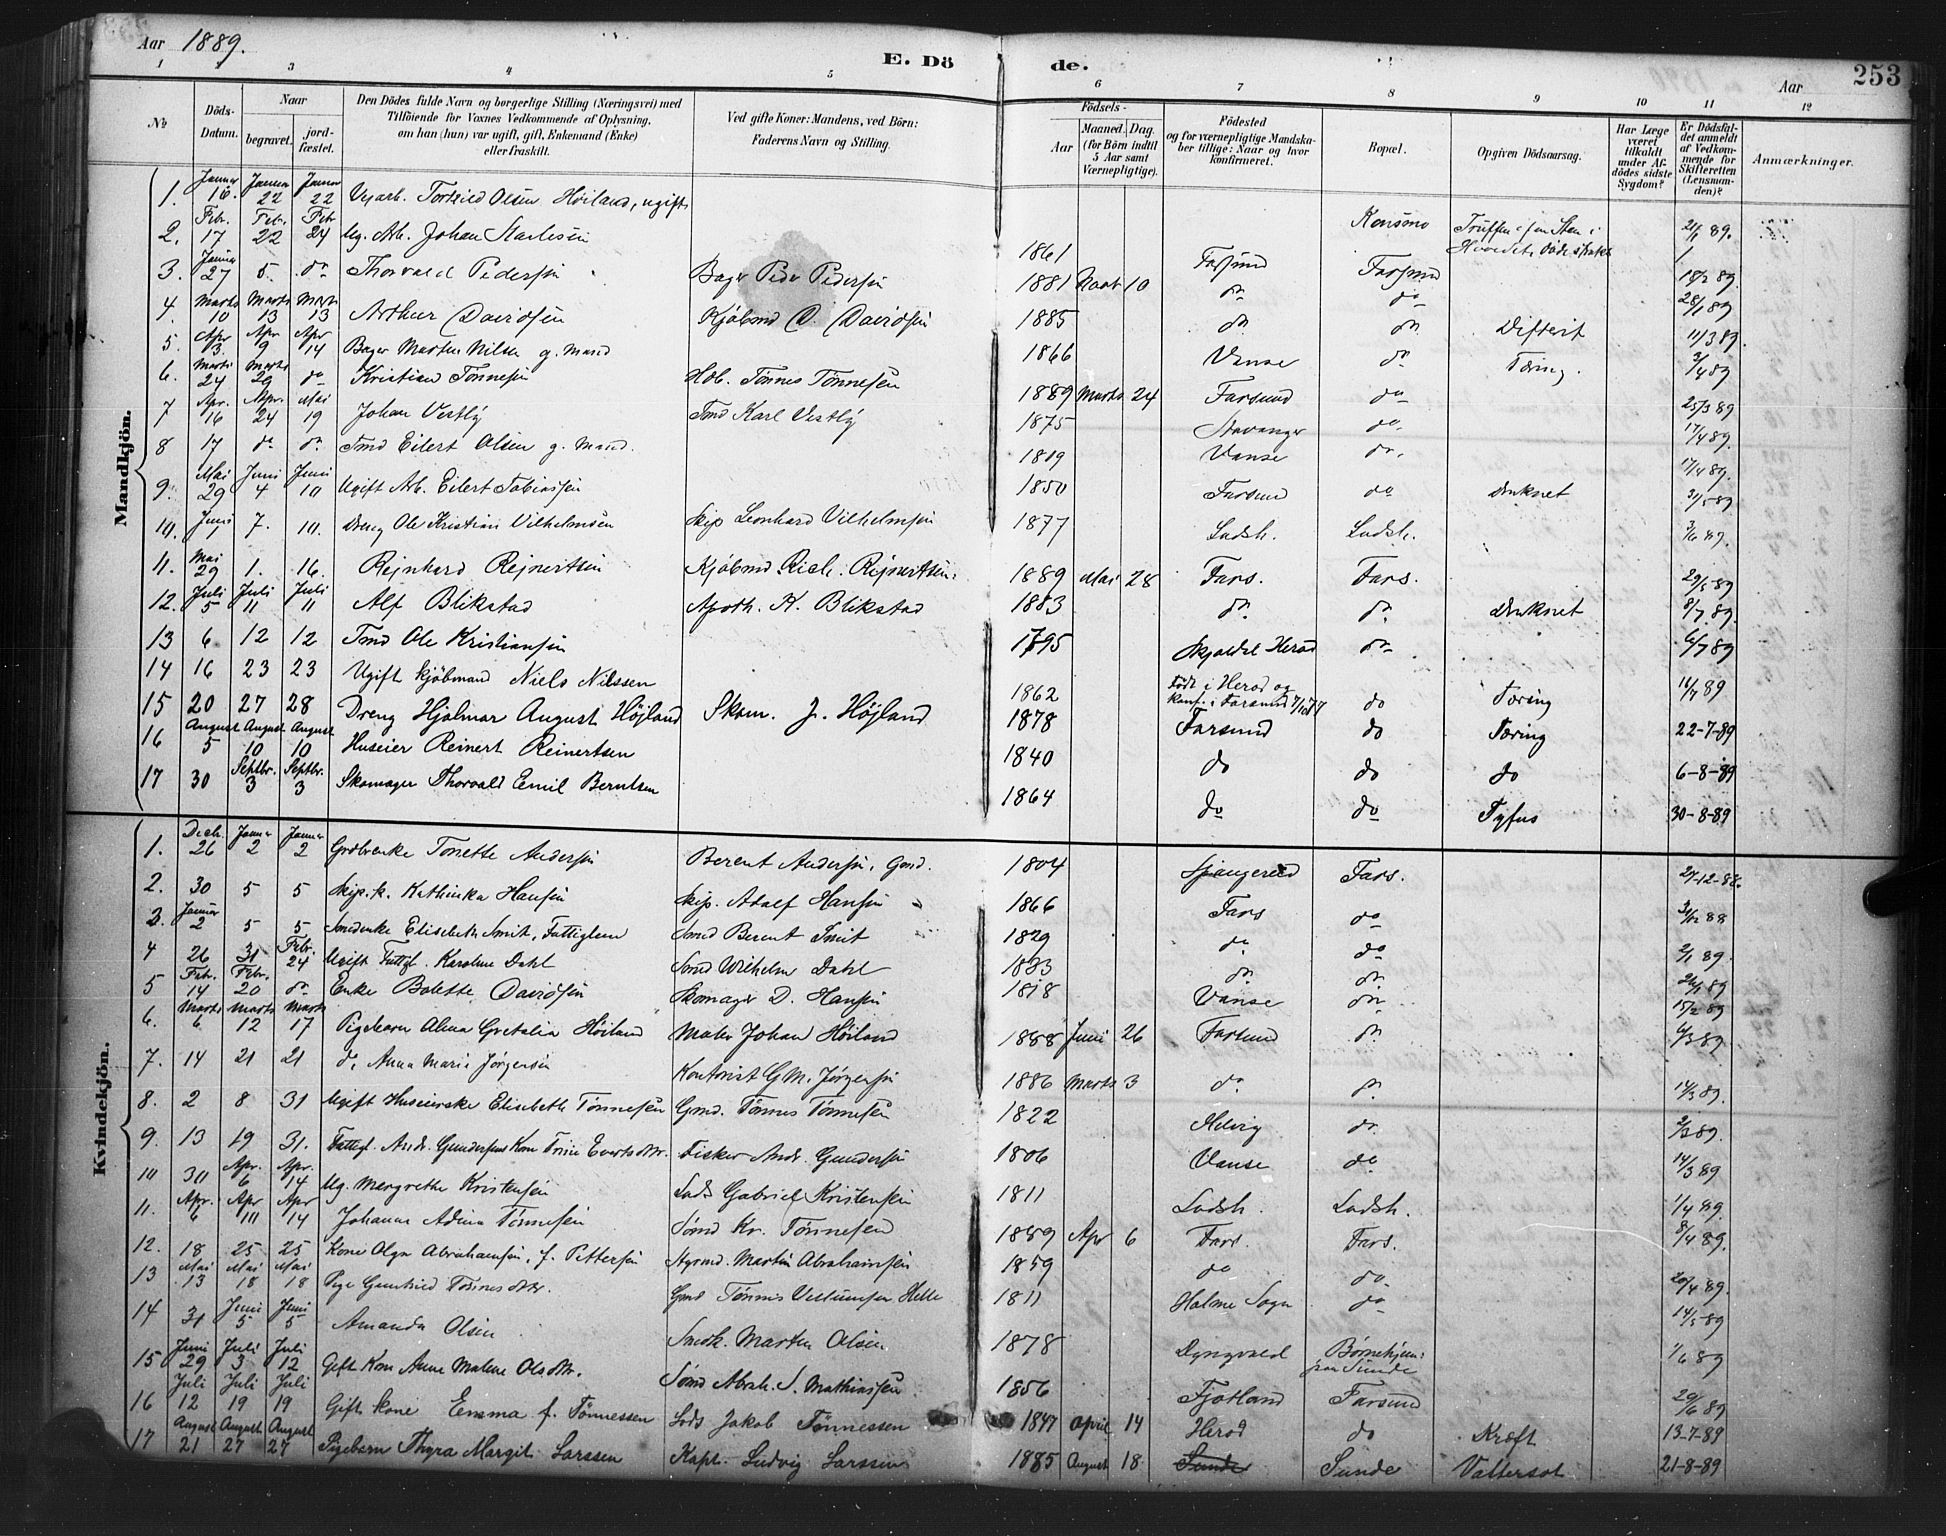 Aar 1889.
E. Dö de.
Aar
253
1 2 3 4 5 6 7 8 9 10 11 12
№
Döds-Datum.
Naar
begravet.
jordfæstet.
Den Dödes fulde Navn og borgerlige Stilling (Næringsvei) med
Tilföiende for Voxnes Vedkommende af Oplysning,
om han (hun) var ugift, gift, Enkemand (Enke)
eller fraskilt.
Ved gifte Koner: Mandens, ved Börn:
Faderens Navn og Stilling.
Födsels-
Aar
Maaned. Dag.
(for Börn indtil
5 Aar samt
Værnepligtige).
Födested
og for værnepligtige Mandska-
ber tillige: Naar og hvor
konfirmeret.
Bopæl.
Opgiven Dödsaarsag.
Har Læge
været
tilkaldt
under Af-
dödes sidste
Sygdom?
Er Dödsfal-
det anmeldt
af Vedkom-
mende for
Skifteretten
(Lensman-
den)?
Anmærkninger.
Mandkjön.
1. Januar 16. Januar 22 Januar 22 Olsen Höiland, ugift Konsmo 21/1 89.
2. Febr. 17 Febr. 22 Febr 24 Ug. Arb. Johan 1861 Farsund Farsund 18/2 89
3. Januar 27 5. do Thorvald Pedersen Bager Peder Pedersen 1881 10 do do 28/1 89
4. Marts 10 Marts 13 Marts 13 Arthur Davidsen Kjöbmd D. Davidsen 1885 do do Difterit 11/3 89.
5. Apr 3. Apr 9 Apr 14 Bager Morten Nilsen g. Mand 1866 Vanse do Tæring. 3/4 89
6. Marts 24 Marts 29 do Kristian Tönnesen Tönnes Tönnesen 1889 Marts 24 Farsund do 25/3 89
7 Apr. 16 Apr. 24 Mai 19 Johan Vestly Karl Vestly 1875 Stavanger do 17/4 89.
8 17 do do Eilert Olsen g. Mand. 1819 Vanse do. 17/4 89.
9. Mai 29 Juni 4 Juni 10 Ugift Arb. Eilert Tobiassen 1850 Farsund do Druknet 31/5 89
10. Juni 1 7. 10. Dreng Ole Kristian Vilhelmsen Skip Leonhard Vilhelmsen 1877 Ladsh. Ladsh. 3/6 89.
11. Mai 29 1. 16. Rejnhard Rejnertsen Kjöbmd Rich. Rejnertsen 1889 Mai 28 Fars. Fars. 29/5 89
12. Juli 5 Juli 11 Juli 11 Alf Blikstad Apoth. K. Blikstad 1883 do do Druknet 8/7 89.
13 6 12 12 Ole Kristiansen 1795 Herad do 6/7 89
14 16 23 23 Ugift Kjöbmand Niels Nilssen 1862 Födt i Herad og konf. i Farsund do Tæring
15 20 27 28 Dreng Hjalmar August Höjland Skom. J. Höjland 1878 Farsund do Tæring 22-7-89
16 August 5 August 10 August 10 Huseier Reinert Reinertsen 1840 do do do 6-8-89
17 30 Septbr. 3 Septbr. 3 Skomager Thorvald Emil Berntsen 1864 do do Tyfus 30-8-89
Kvindekjön.
1. Dech. 26 Januar 2 Januar 2 Tonette Andersen Berent Andersen, Gmd. 1804 Fars. 27-12-88.
2. 30 5 5 Skip. k. Kathinka Hansen Skip. Adolf Hansen 1866 Fars do 31/12 88
3. Januar 2 5 5 Elisabeth Smit, Fattiglem Berent Smit 1829 do do 2/1 89.
4 26 31 Febr. 24 Ugift Fattgl. Karoline Dahl Wilhelm Dahl do do
5 Febr. 14 Febr. 20 do Enke Bolette Davidsen Skomager D. Hansen 1818 Vanse do 15/2 89
6. Marts 6 Marts 12 Marts 17 Pigebarn Alma Gretalia Höiland Maler Johan Höiland 1888 Juni 26 Farsund do 6/3 89
7. 14 21 21 do Anna Marie Jörgensen Kontorist G.M. Jörgensen 1886 Marts 3 do do 14/3 89.
8. 2 8 31 Ugift Elisabeth Tönnesen Gmd. Tönnes Tönnesen 1822 do
9. 13 19 31. Fattgl. Andr. Gundersens Kone Trine Evertsdtr. Fisker Andr. Gundersen 1806 Vanse do 14/3 89
10 30 Apr. 6 Apr. 14 Ug. Margrethe Kristensen Lods Gabriel Kristensen 1811 Ladsh. Ladsh. 1/4 89.
11. Apr. 6 Apr 14 Johanne Adina Tönnesen Kr. Tönnesen 1889 Apr 6 Fars. Fars. 8/4 89.
12. 18 25 25 Kone Olga Abrahamsen, f. Pettersen Styrmd. Martin Abrahamsen 1859 do do 20/4 89.
13 Mai 13 Mai 18 Mai 18 Pige Tönnes 1811 Halme Sogn do 14/5 89
14 31 Juni 5 Juni 5 Amanda Olsen Morten Olsen 1878 Dyngvold Börnehjem paa Sunde 1/6 89
15 Juni 29 Juli 3 Juli 12 Gift Kone Anne Malene Olsdtr. Abrah. S. Mathiassen 1856 Fjotland Farsund
16 Juli 12 Juli 19 Juli 19 Gift kone Emma f. Tönnessen Lods Jakob Tönnessen 1847 April 14 Herad do Kræft 13-7-89
17 August 21 August 27 August 27 Pigebarn Thyra Margit Larssen Kapt. Ludvig Larssen 1885 August 18 Sunde Sunde Vattersot 21-8-89